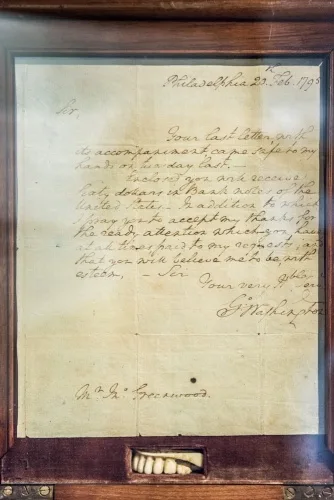 Philadelphia 20th Feb. 1795
Sir,
Your last letter, with
its accompaniment came safe to my
hands on tuesday last.
Enclosed you will receive
sixty dollars in Bank notes of the
United States. In addition to which
I pray you to accept my thanks for
the ready attention which you have
at all times paid to my requests, and
that you will believe me to be, with
esteem, – Sir
Your very
Go Washington
Mr Jno Greenwood.